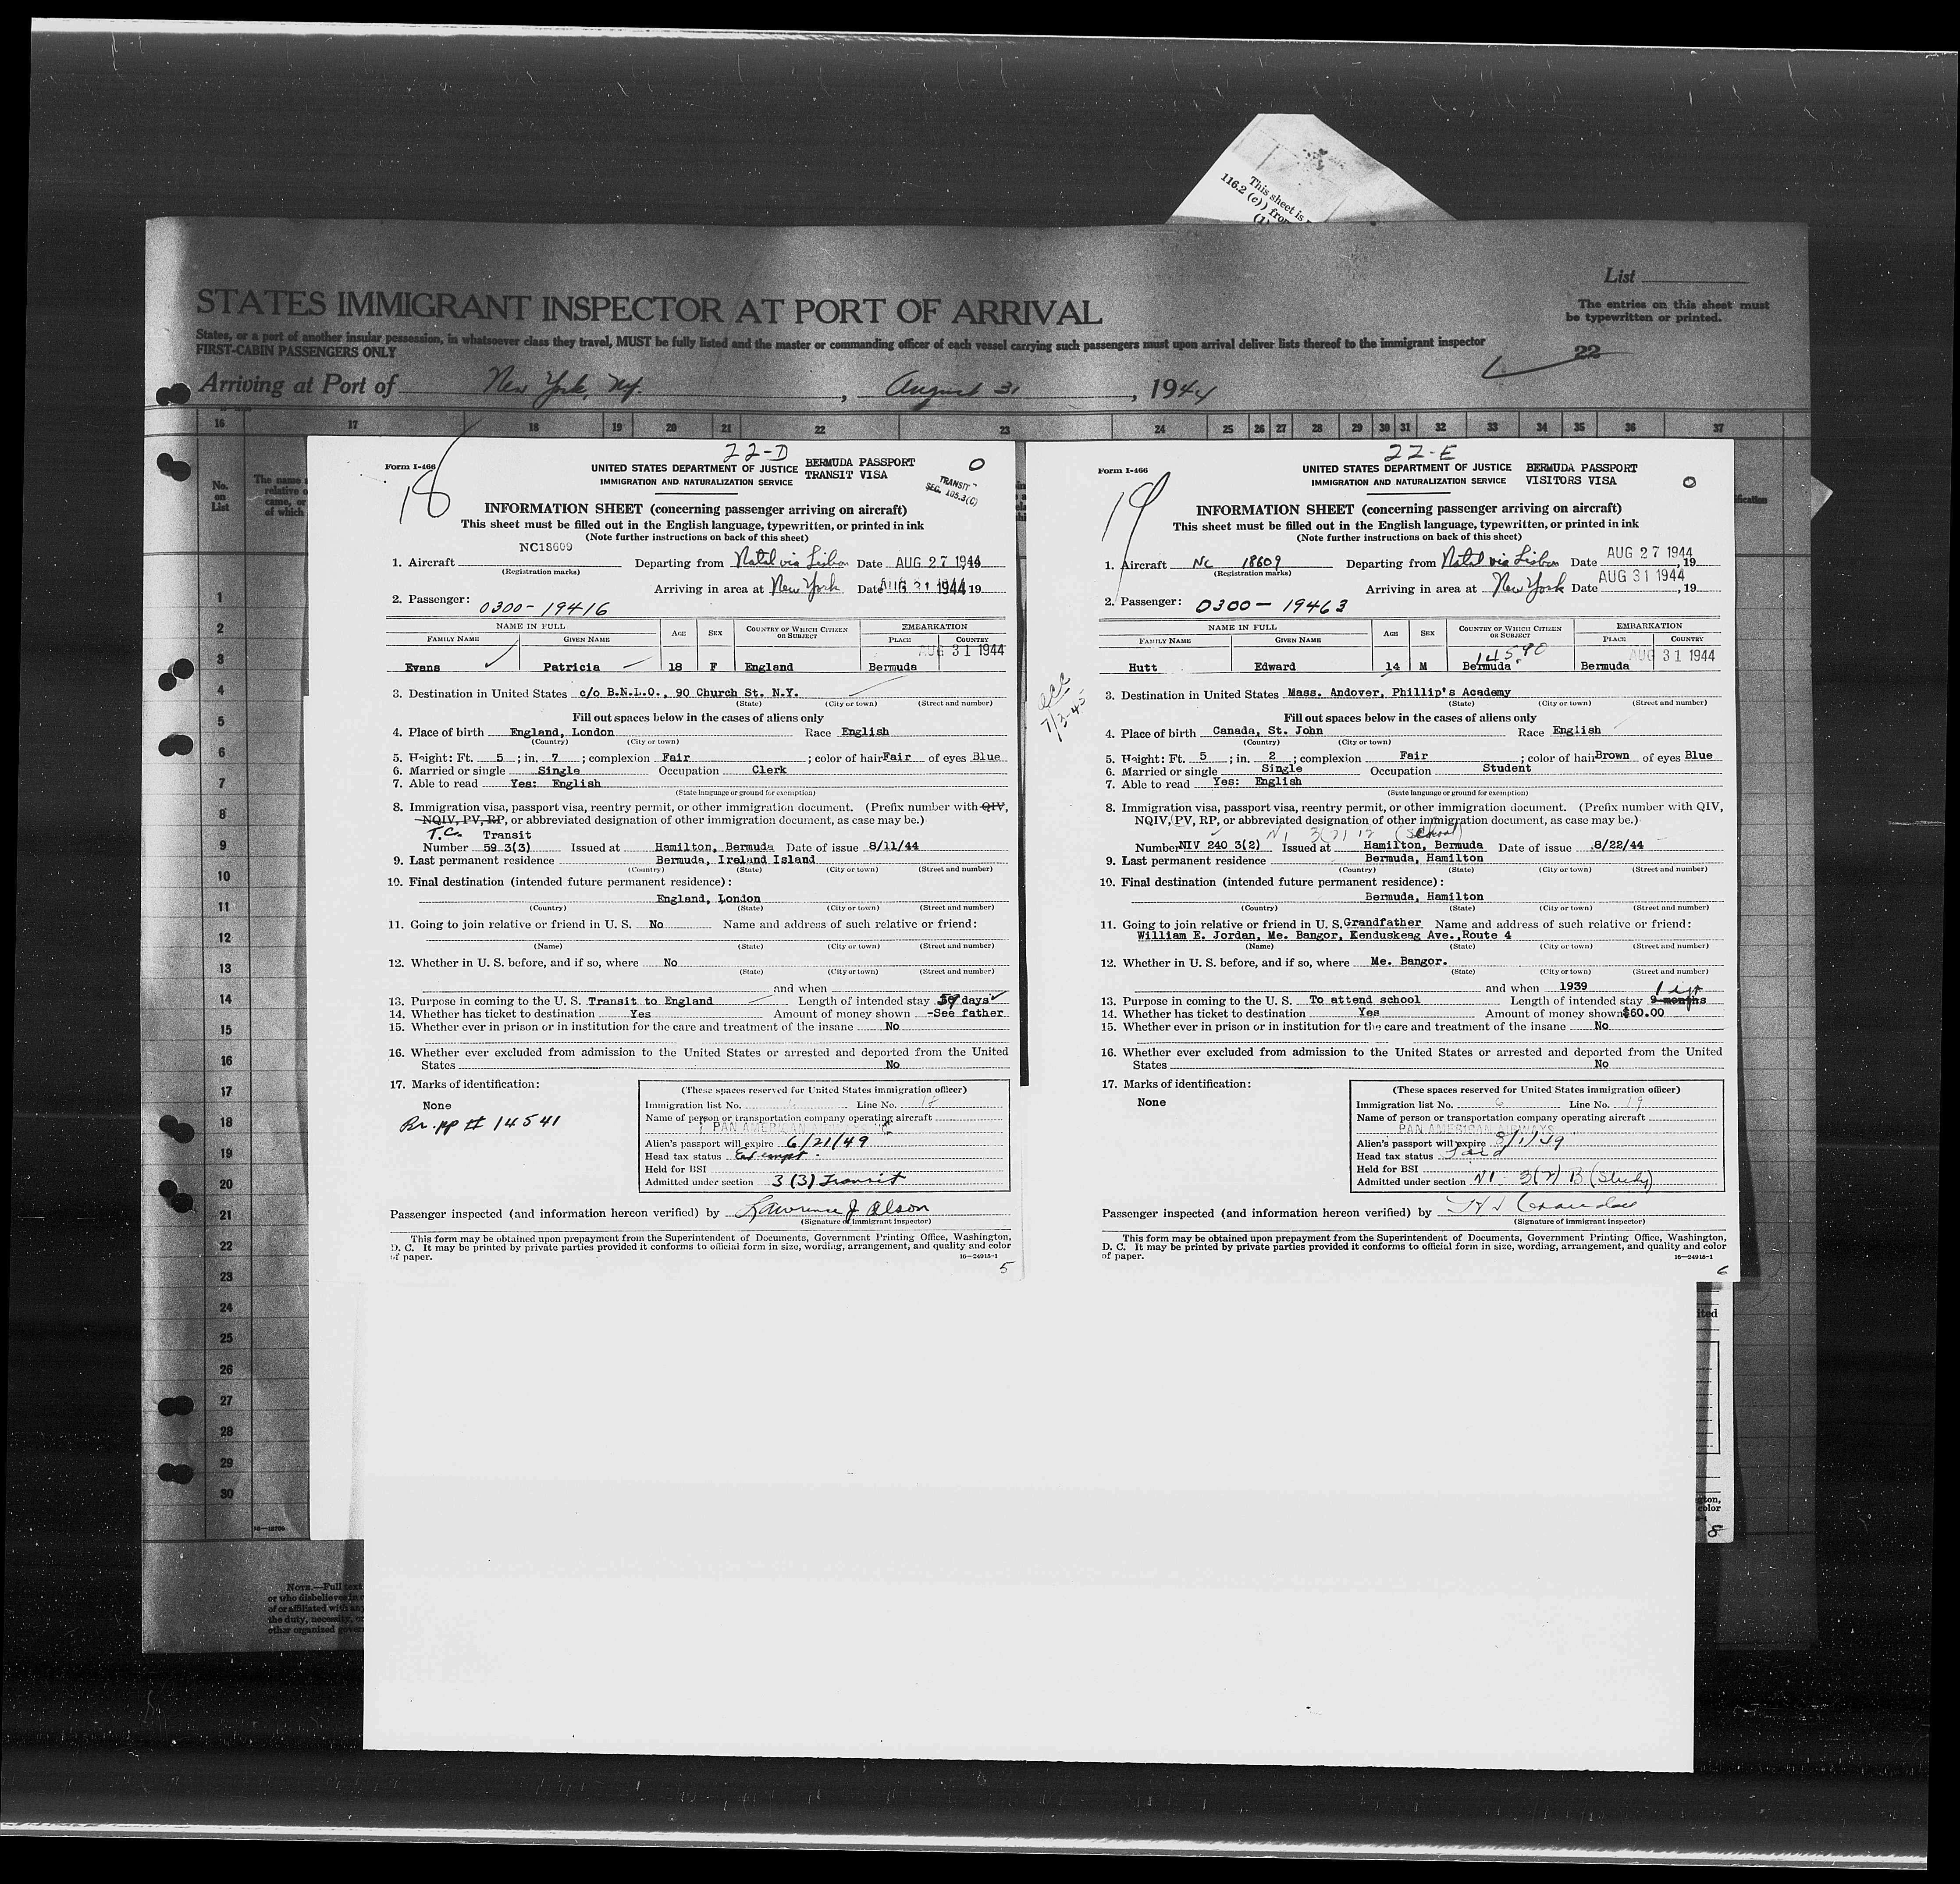 This sheet is
116.2 (c)) from
(1)
List
STATES IMMIGRANT INSPECTOR AT PORT OF ARRIVAL
The entries on this sheet must
be typewritten or printed.
States, or a part of another insular possession, in whatsoever class they travel, MUST be fully listed and the master or commanding officer of each vessel carrying such passengers must upon arrival deliver lists thereof to the immigrant inspector
FIRST-CABIN PASSENGERS ONLY
22
Arriving at Port of New York, N.Y., August 31, 1944
16 17 18 19 20 21 22 23 24 25 26 27 28 29 30 31 32 33 34 35 36 37
No.
on
List
The name
relative o
came, or
of which
1
2
3
4
5
6
7
8
9
10
11
12
13
14
15
16
17
18
19
20
21
22
23
24
25
26
27
28
29
30
NOTE.—Full text
or who disbelieves in
of or affiliated with any
the duty, necessity, or
other organized govern
22-D
Form I-466
18
UNITED STATES DEPARTMENT OF JUSTICE
IMMIGRATION AND NATURALIZATION SERVICE
BERMUDA PASSPORT
TRANSIT VISA
0
TRANSIT
SEC. 105.3(C)
INFORMATION SHEET (concerning passenger arriving on aircraft)
This sheet must be filled out in the English language, typewritten, or printed in ink
(Note further instructions on back of this sheet)
NC18609
1. Aircraft Departing from Natal via Lisbon Date AUG 27 1944
(Registration marks)
Arriving in area at New York Date AUG 31 1944 19
2. Passenger: 0300-19416
NAME IN FULL AGE SEX COUNTRY OF WHICH CITIZEN OR SUBJECT EMBARKATION
FAMILY NAME GIVEN NAME PLACE COUNTRY
AUG 31 1944
Evans Patricia 18 F England Bermuda
3. Destination in United States c/o B.N.L.O., 90 Church St. N.Y.
(State) (City or town) (Street and number)
Fill out spaces below in the cases of aliens only
4. Place of birth England, London Race English
(Country) (City or town)
5. Height: Ft. 5 ; in. 7 ; complexion Fair ; color of hair Fair of eyes Blue
6. Married or single Single Occupation Clerk
7. Able to read Yes: English
(State language or ground for exemption)
8. Immigration visa, passport visa, reentry permit, or other immigration document. (Prefix number with QIV,
NQIV, PV, RP, or abbreviated designation of other immigration document, as case may be.)
T.C. Transit
Number 59 3(3) Issued at Hamilton, Bermuda Date of issue 8/11/44
9. Last permanent residence Bermuda, Ireland Island
(Country) (State) (City or town) (Street and number)
10. Final destination (intended future permanent residence):
England, London
(Country) (State) (City or town) (Street and number)
11. Going to join relative or friend in U. S. No Name and address of such relative or friend:
(Name) (State) (City or town) (Street and number)
12. Whether in U. S. before, and if so, where No
(State) (City or town) (Street and number)
and when
13. Purpose in coming to the U. S. Transit to England Length of intended stay days
14. Whether has ticket to destination Yes Amount of money shown -See father
15. Whether ever in prison or in institution for the care and treatment of the insane No
16. Whether ever excluded from admission to the United States or arrested and deported from the United
States No
17. Marks of identification:
None
Br. pp # 14541
(These spaces reserved for United States immigration officer)
Immigration list No. 6 Line No. 18
Name of person or transportation company operating aircraft
PAN AMERICAN
Alien's passport will expire 6/21/49
Head tax status Exempt.
Held for BSI
Admitted under section 3(3) Transit
Passenger inspected (and information hereon verified) by Lawrence J Olson
(Signature of immigrant inspector)
This form may be obtained upon prepayment from the Superintendent of Documents, Government Printing Office, Washington,
D. C. It may be printed by private parties provided it conforms to official form in size, wording, arrangement, and quality and color
of paper. 16—24915-1
5
7/3-45
22-E
Form I-466
19
UNITED STATES DEPARTMENT OF JUSTICE
IMMIGRATION AND NATURALIZATION SERVICE
BERMUDA PASSPORT
VISITORS VISA
0
INFORMATION SHEET (concerning passenger arriving on aircraft)
This sheet must be filled out in the English language, typewritten, or printed in ink
(Note further instructions on back of this sheet)
AUG 27 1944
1. Aircraft NC 18609 Departing from Natal via Lisbon Date , 19
(Registration marks)
AUG 31 1944
Arriving in area at New York Date , 19
2. Passenger: 0300-19463
NAME IN FULL AGE SEX COUNTRY OF WHICH CITIZEN OR SUBJECT EMBARKATION
FAMILY NAME GIVEN NAME PLACE COUNTRY
14590 AUG 31 1944
Hutt Edward 14 M Bermuda Bermuda
3. Destination in United States Mass. Andover, Phillip's Academy
(State) (City or town) (Street and number)
Fill out spaces below in the cases of aliens only
4. Place of birth Canada, St. John Race English
(Country) (City or town)
5. Height: Ft. 5 ; in. 2 ; complexion Fair ; color of hair Brown of eyes Blue
6. Married or single Single Occupation Student
7. Able to read Yes: English
(State language or ground for exemption)
8. Immigration visa, passport visa, reentry permit, or other immigration document. (Prefix number with QIV,
NQIV, PV, RP, or abbreviated designation of other immigration document, as case may be.)
NI 3(2) (School)
Number NIV 240 3(2) Issued at Hamilton, Bermuda Date of issue 8/22/44
9. Last permanent residence Bermuda, Hamilton
(Country) (State) (City or town) (Street and number)
10. Final destination (intended future permanent residence):
Bermuda, Hamilton
(Country) (State) (City or town) (Street and number)
11. Going to join relative or friend in U. S. Grandfather Name and address of such relative or friend:
William E. Jordan, Me. Bangor, Kenduskeag Ave., Route 4
(Name) (State) (City or town) (Street and number)
12. Whether in U. S. before, and if so, where Me. Bangor.
(State) (City or town) (Street and number)
and when 1939
13. Purpose in coming to the U. S. To attend school Length of intended stay 9 months
14. Whether has ticket to destination Yes Amount of money shown $60.00
15. Whether ever in prison or in institution for the care and treatment of the insane No
16. Whether ever excluded from admission to the United States or arrested and deported from the United
States No
17. Marks of identification:
None
(These spaces reserved for United States immigration officer)
Immigration list No. 6 Line No. 19
Name of person or transportation company operating aircraft
PAN AMERICAN AIRWAYS
Alien's passport will expire 8/1/49
Head tax status Paid
Held for BSI
Admitted under section NI 3(2) B (Study)
Passenger inspected (and information hereon verified) by
(Signature of immigrant inspector)
This form may be obtained upon prepayment from the Superintendent of Documents, Government Printing Office, Washington,
D. C. It may be printed by private parties provided it conforms to official form in size, wording, arrangement, and quality and color
of paper. 16—24915-1
6
ited
gton,
color
8